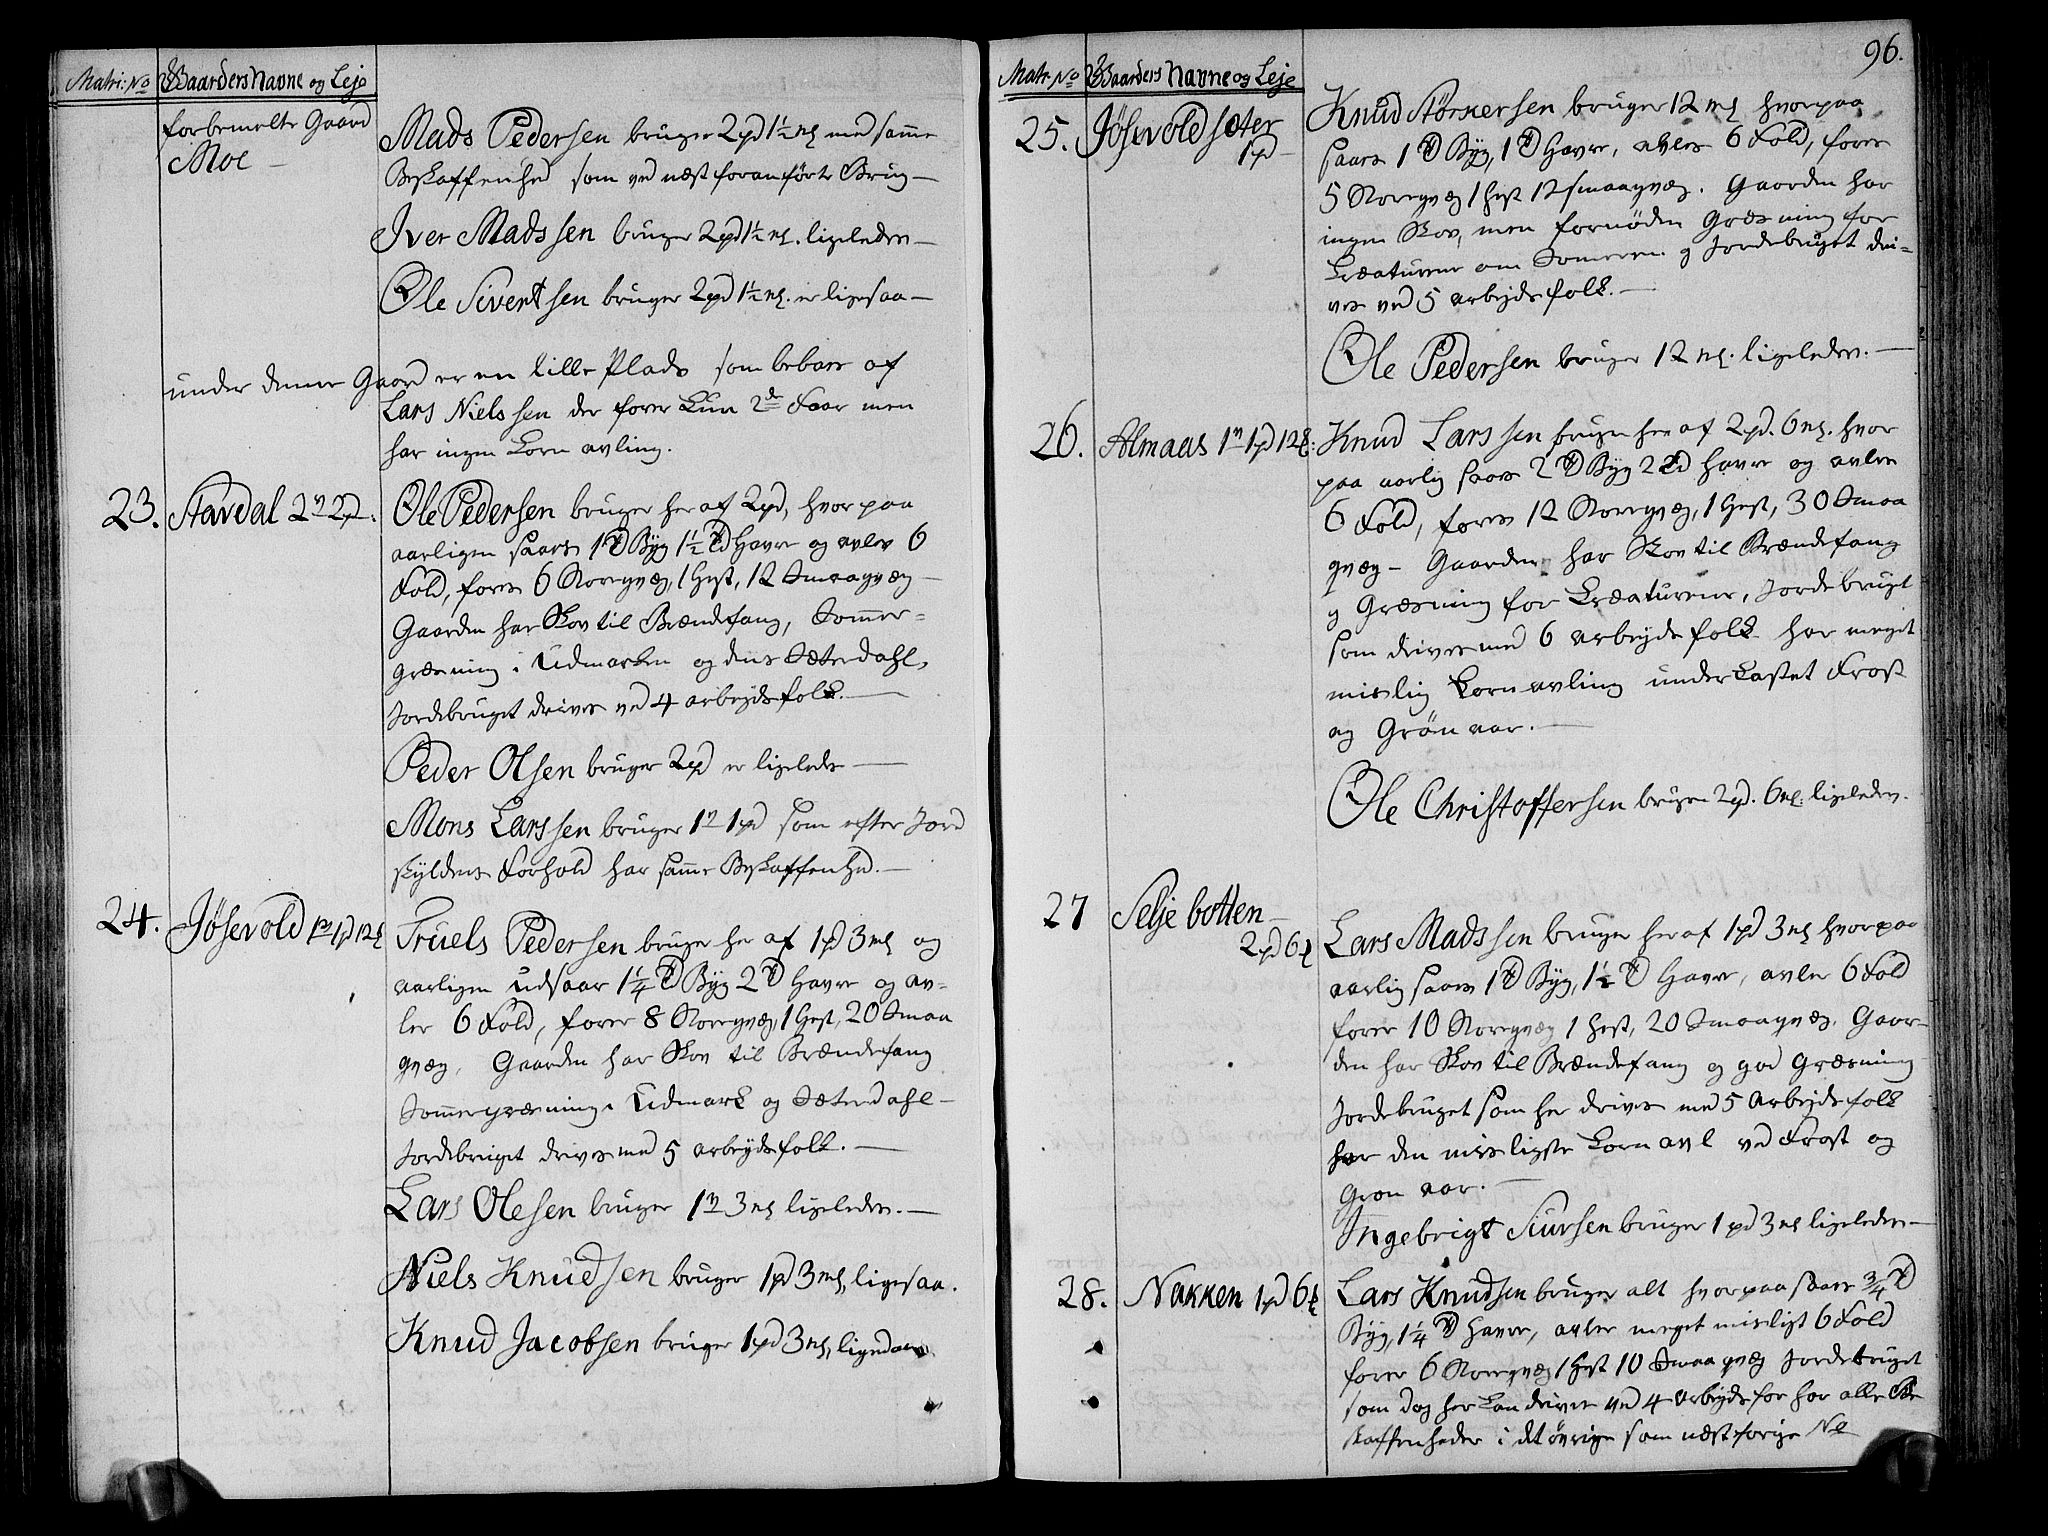 Matri: No Gaarders Navne og Leje
forbemelte Gaard
Moe —
Mads Pedersen bruger 2pd 1½ mk med samme
Beskaffenhed som ved næst foranførte Brug —
Iver Madssen bruger 2pd 1½ mk. ligeledes —
Ole Sivertsen bruger 2pd 1½ mk. er ligesaa —
under denne Gaard er en lille Plads som beboes af
Lars Nielssen der foder kun 2de Faar men
har ingen Korn avling.
23. Stavdal 2 v 2 pd.
Ole Pedersen bruger her af 2pd, hvorpaa
aarligen saaes 1 Td Byg 1½ Td Havre og avles 6
Fold, fores 6 Storeqvæg, 1 Hest, 12 Smaaqvæg —
Gaarden har Skov til Brændefang, Sommer=
græsning i Udmarken og dens Sæterdahl,
Jordebruget drives ved 4 arbeydsfolk. —
Peder Olsen bruger 2pd er ligeleds —
Mons Larssen bruger 1 v 1 pd som efter Jord
skyldens Forhold har samme Beskaffenhed. —
24. Jøsevold 1 v 1 pd 12 mk
Truels Pedersen bruger her af 1 pd 3 mk og
aarligen udsaar 1¼ Td Byg 2 Td Havre og av-
ler 6 Fold, forer 8 Storeqvæg, 1 Hest, 20 Smaa
qvæg, Gaarden har Skov til Brændefang
Sommergræsning i Udmark og Sæterdahl —
Jordebruget drives med 5 arbeydsfolk. —
Lars Olesen bruger 1 v 3 mk ligeledes. —
Niels Knudsen bruger 1 pd 3 mk, ligesaa.
Knud Jacobsen bruger 1 pd 3 mk, ligedan.
96.
Matr No Gaarders Navne og Leje
25. Jøsevoldsæter
1 pd —
Knud Størkersen bruger 12 mk hvorpaa
saaes 1 Td Byg, 1 Td Havre, avles 6 Fold, fores
5 Storeqvæg 1 Hest 12 smaaqvæg. Gaarden har
ingen Skov, men fornøden Græsning for
Creaturene om Sommeren og Jordebruget dri-
ves ved 5 arbeydsfolk. —
Ole Pedersen bruger 12 mk. ligeledes. —
26. Almaas 1 v 1 pd 12 mk:
Knud Larssen bruger her af 2 pd. 6 mk. hvor
paa aarlig saaes 2 Td Byg 2 Td Havre og avles
6 Fold, fores 12 Storeqvæg, 1 Hest, 30 Smaa
qvæg — Gaarden har Skov til Brændefang
og Græsning for Creaturene, Jordebruget
som drives med 6 arbeydsfolk har meget
mislig Kornavling underkastet Frost
og Grøn aar. —
Ole Christoffersen bruger 2 pd. 6 mk. ligeledes.
27 Selje botten —
2 pd 6 mk
Lars Madssen bruger her af 1 pd 3 mk hvorpaa
aarlig saaes 1 Td Byg, 1½ Td Havre, avler 6 Fold
forer 10 Storeqvæg 1 Hest, 20 Smaaqvæg. Gaar-
den har Skov til Brændefang og god Græsning
Jordebruget som her drives med 5 Arbeydsfolk
har den misligste Korn avl ved Frost og
Grøn aar. —
Ingebrigt Siursen bruger 1 pd 3 mk ligeledes —
28. Nakken 1 pd 6 mk
Lars Knudsen bruger alt hvorpaa saaes ¾ Td
Byg, 1¼ Td Havre, avler meget misligt 6 Fold
forer 6 Storeqvæg 1 Hest 10 Smaaqvæg Jordebruget
som dog her kan drives ved 4 arbeyds for har alle Be
skaffenheder i det øvrige som næst forige No